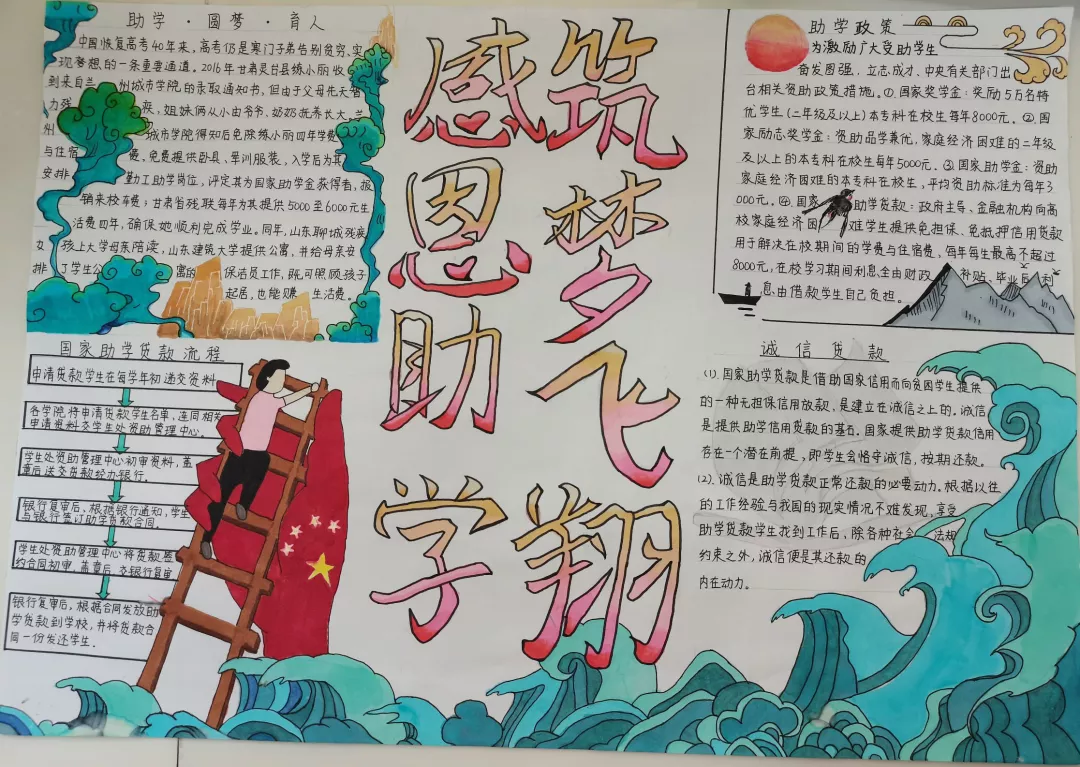 助学·圆梦·育人
中国恢复高考40年来,高考仍是寒门子弟告别贫穷,实
现梦想的一条重要通道。2016年甘肃灵台县练小丽收
到来自兰州城市学院的录取通知书,但由于父母先天智
力残疾,姐妹俩从小由爷爷、奶奶抚养长大,兰
州城市学院得知后免除练小丽四年学费
与住宿费。免费提供卧具、军训服装,入学后为其
安排勤工助学岗位,评定其为国家助学金获得者,报
销来校车费;甘肃省残联每年为其提供5000至6000元生
活费四年,确保她顺利完成学业。同年,山东聊城残疾
女孩上大学母亲陪读,山东建筑大学提供公寓,并给母亲安
排了学生公寓的保洁员工作,既可照顾孩子
起居,也能赚生活费。
国家助学贷款流程
申请贷款学生在每学年初递交资料
各学院将申请贷款学生名单,连同相关
申请资料交学生处资助管理中心。
学生处资助管理中心初审资料,盖
章后送交贷款经办银行。
银行复审后,根据银行通知,学生
与银行签订助学贷款合同。
学生处资助管理中心将贷款签
约合同初审,盖章后,交银行复审
银行复审后,根据合同发放助
学贷款到学校,并将贷款合
同一份发还学生.
感恩助学
筑梦飞翔
助学政策
为激励广大受助学生
奋发图强,立志成才,中央有关部门出
台相关资助政策措施。①国家奖学金:奖励5万名特
优学生(二年级及以上)本专科在校生每年8000元。②国
家励志奖学金:资助品学兼优,家庭经济困难的二年级
及以上的本专科在校生每年5000元。③国家助学金:资助
家庭经济困难的本专科在校生,平均资助标准为每年3
000元。④国家助学贷款:政府主导、金融机构向高
校家庭经济困难学生提供免担保、免抵押信用贷款
用于解决在校期间的学费与住宿费,每年每生最高不超过
8000元,在校学习期间利息全由财政补贴,毕业后利
息由借款学生自己负担。
诚信贷款
(1).国家助学贷款是借助国家信用而向贫困学生提供
的一种无担保信用放款,是建立在诚信之上的,诚信
是提供助学信用贷款的基石。国家提供助学贷款信用
存在一个潜在前提,即学生会恪守诚信,按期还款。
(2).诚信是助学贷款正常还款的必要动力。根据以往
的工作经验与我国的现实情况不难发现,享受
助学贷款学生找到工作后,除各种社会、法规
约束之外,诚信便是其还款的
内在动力。